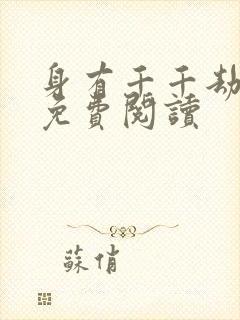 身有千千劫
免費閱讀
蘇俏